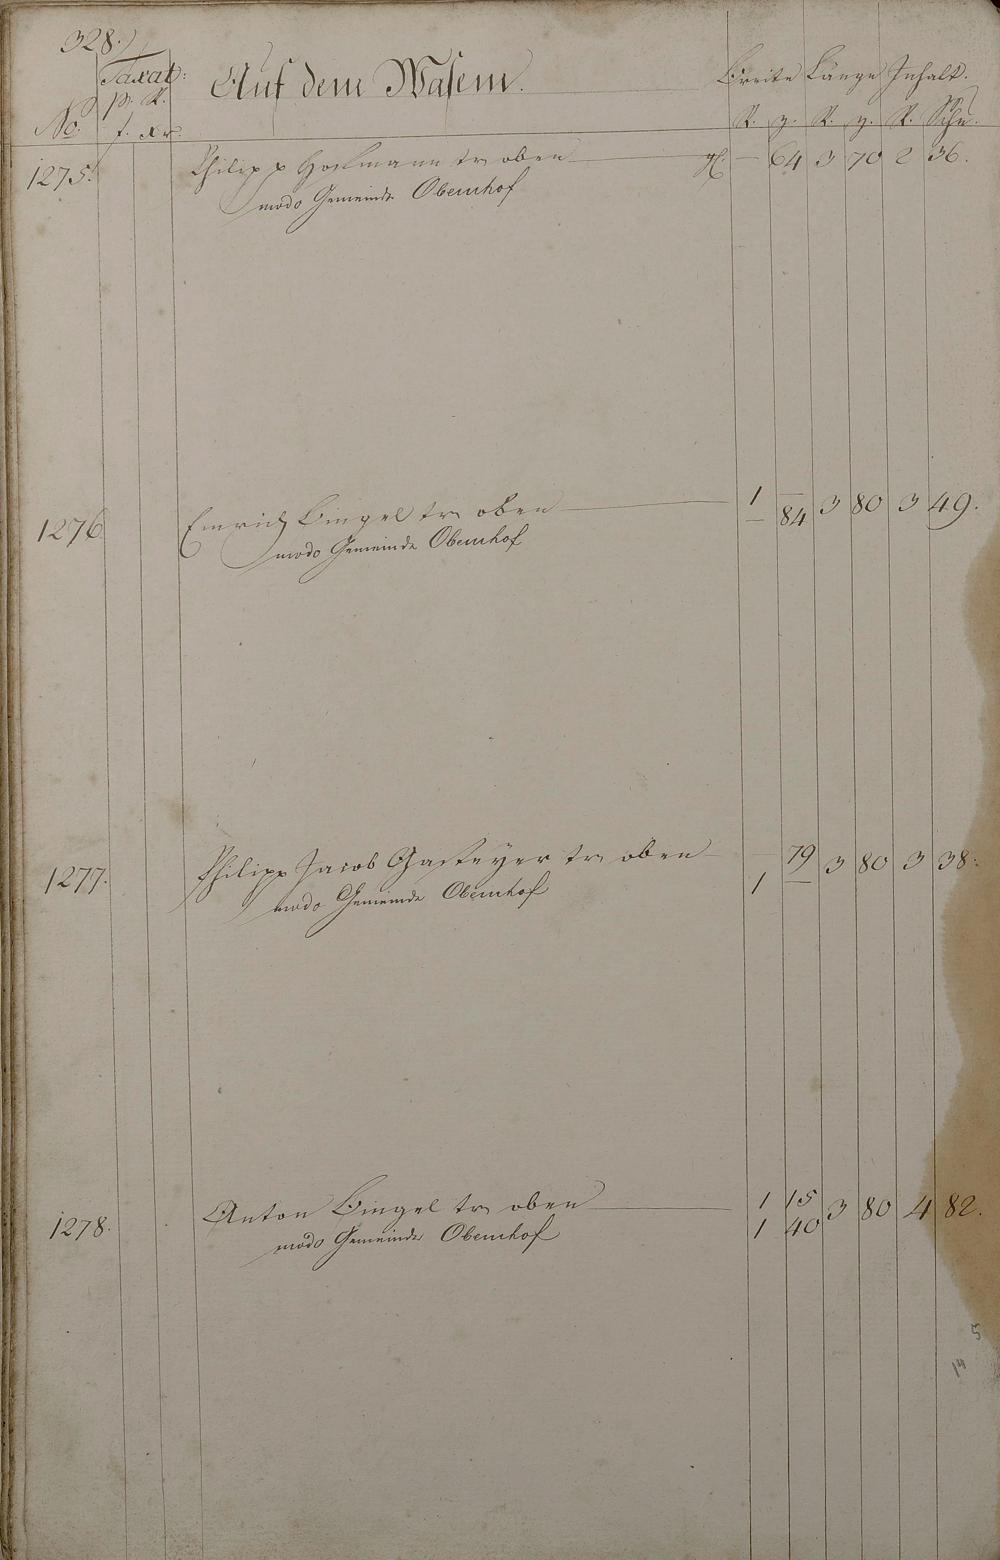 328.
Taxat: Auf dem Wasem. Breite Länge Inhalt.
p. R.
No. f. xr. R. z. R. z. R. Schu.
1275. Philipp Hofmann tr oben gl. — 64 3 70 2 36.
modo Gemeinde Obernhof
1276 Emrich Bingel tr oben 1 — 3 80 3 49.
— 84
modo Gemeinde Obernhof
1277. Philipp Jacob Gasteyer tr oben — 79 3 80 3 38.
1 —
modo Gemeinde Obernhof
1278. Anton Bingel tr oben 1 15 3 80 4 82.
1 40
modo Gemeinde Obernhof
5
14